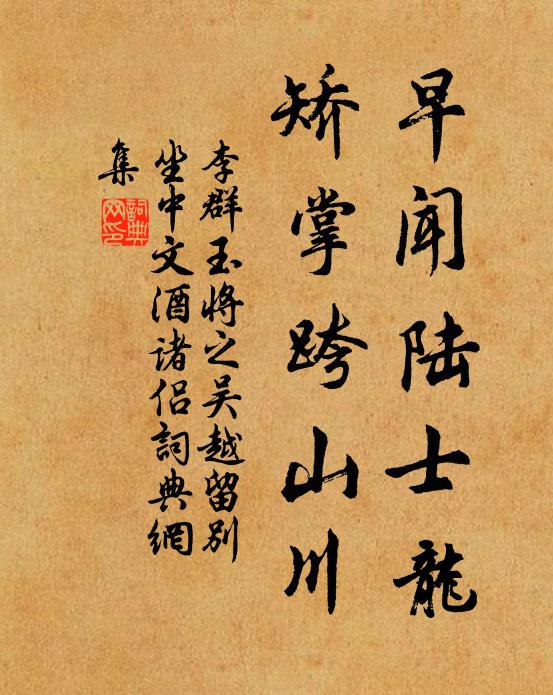 早闻陆士龍
矫掌跨山川
李群玉将之吴越留别
坐中文酒诸侣詞典網
集
詞典
网印